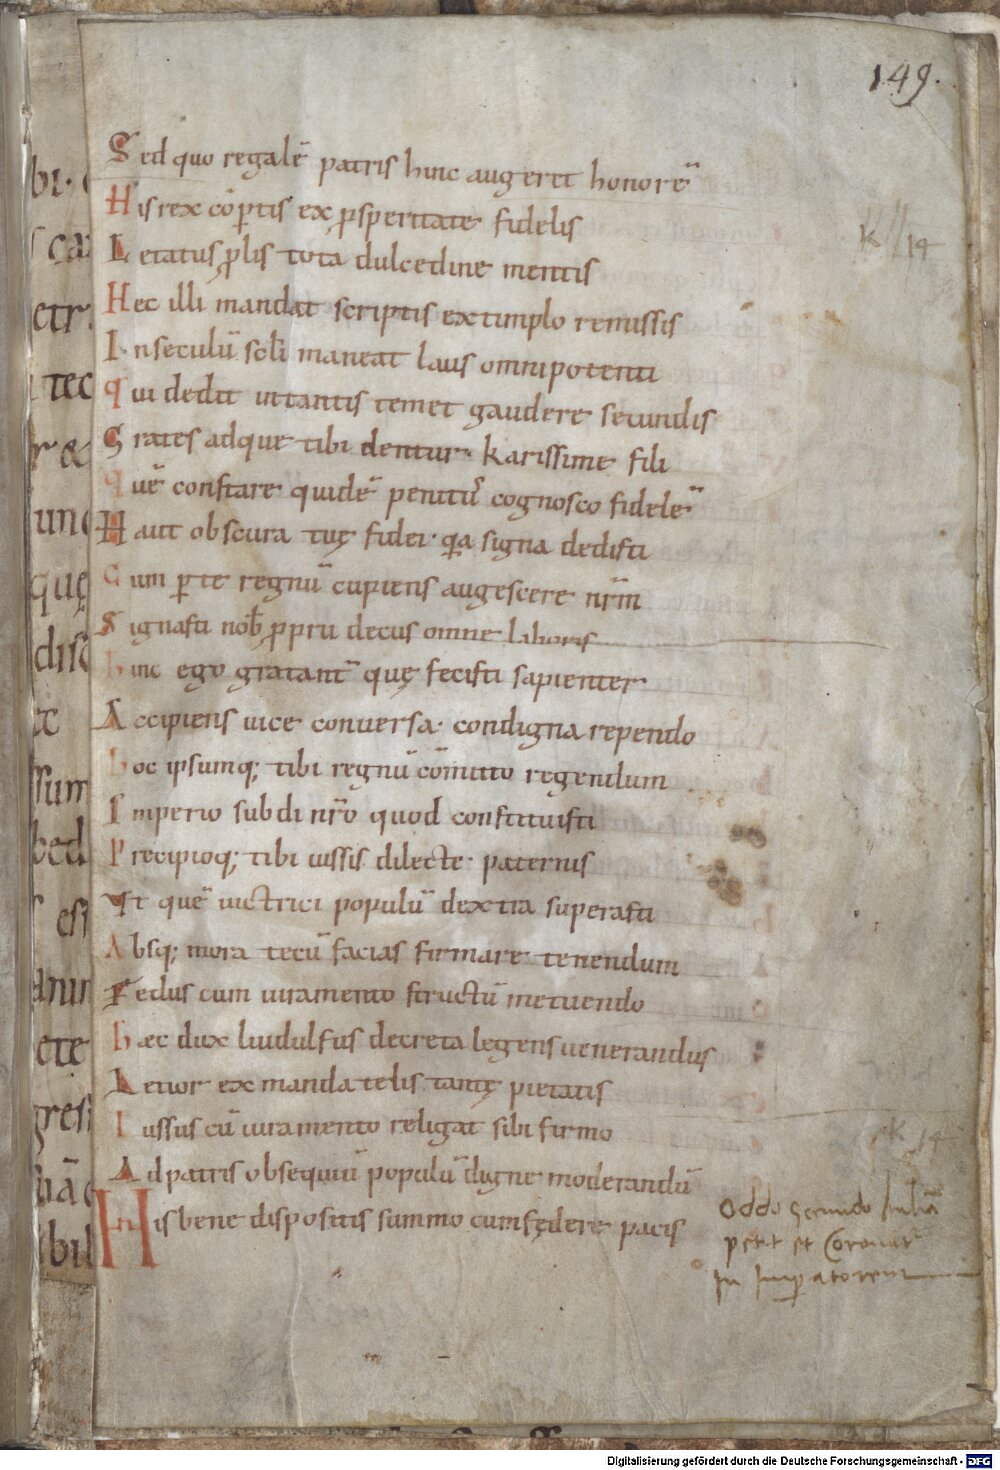 149.
Sed quo regalē patris hinc augeret honorē
His rex cōptis ex psperitate fidelis
Letatus plis tota dulcedine mentis
Hec illi mandat scriptis extimplo remissis
In seculū soli maneat laus omnipotenti
qui dedit intantis temet gaudere secundis
Grates adque tibi dentur. karissime fili
quē constare quidē penitus cognosco fidelē
Haut obscura tuę fidei. qia signa dedisti
Cum p te regnū cupiens augescere nrm
Signasti nob pprii decus omne laboris
hinc ego gratant quę fecisti sapienter
Accipiens uice conuersa. condigna rependo
hoc ipsumq; tibi regnū cōmitto regendum
Imperio subdi nro quod constituisti
Precipioq; tibi iussis dilecte. paternis
Vt quē uictrici populū dextra superasti
Absq; mora tecū facias firmare tenendum
Fedus cum iuramento structū metuendo
hæc dux liudulfus decreta legens uenerandus
Letior ex mandatelis tantę pietatis
Iussus cū iuramento religat sibi firmo
Ad patris obsequiū populū digne moderandū
His bene dispositis summo cum fędere pacis
K 14
K 14
Oddo Secundo
petit et Coronat
In Imperatorem
bi.
etr
tec
r &
unc
quę
disc
ssum
bed
ete
bil
Digitalisierung gefördert durch die Deutsche Forschungsgemeinschaft - DFG